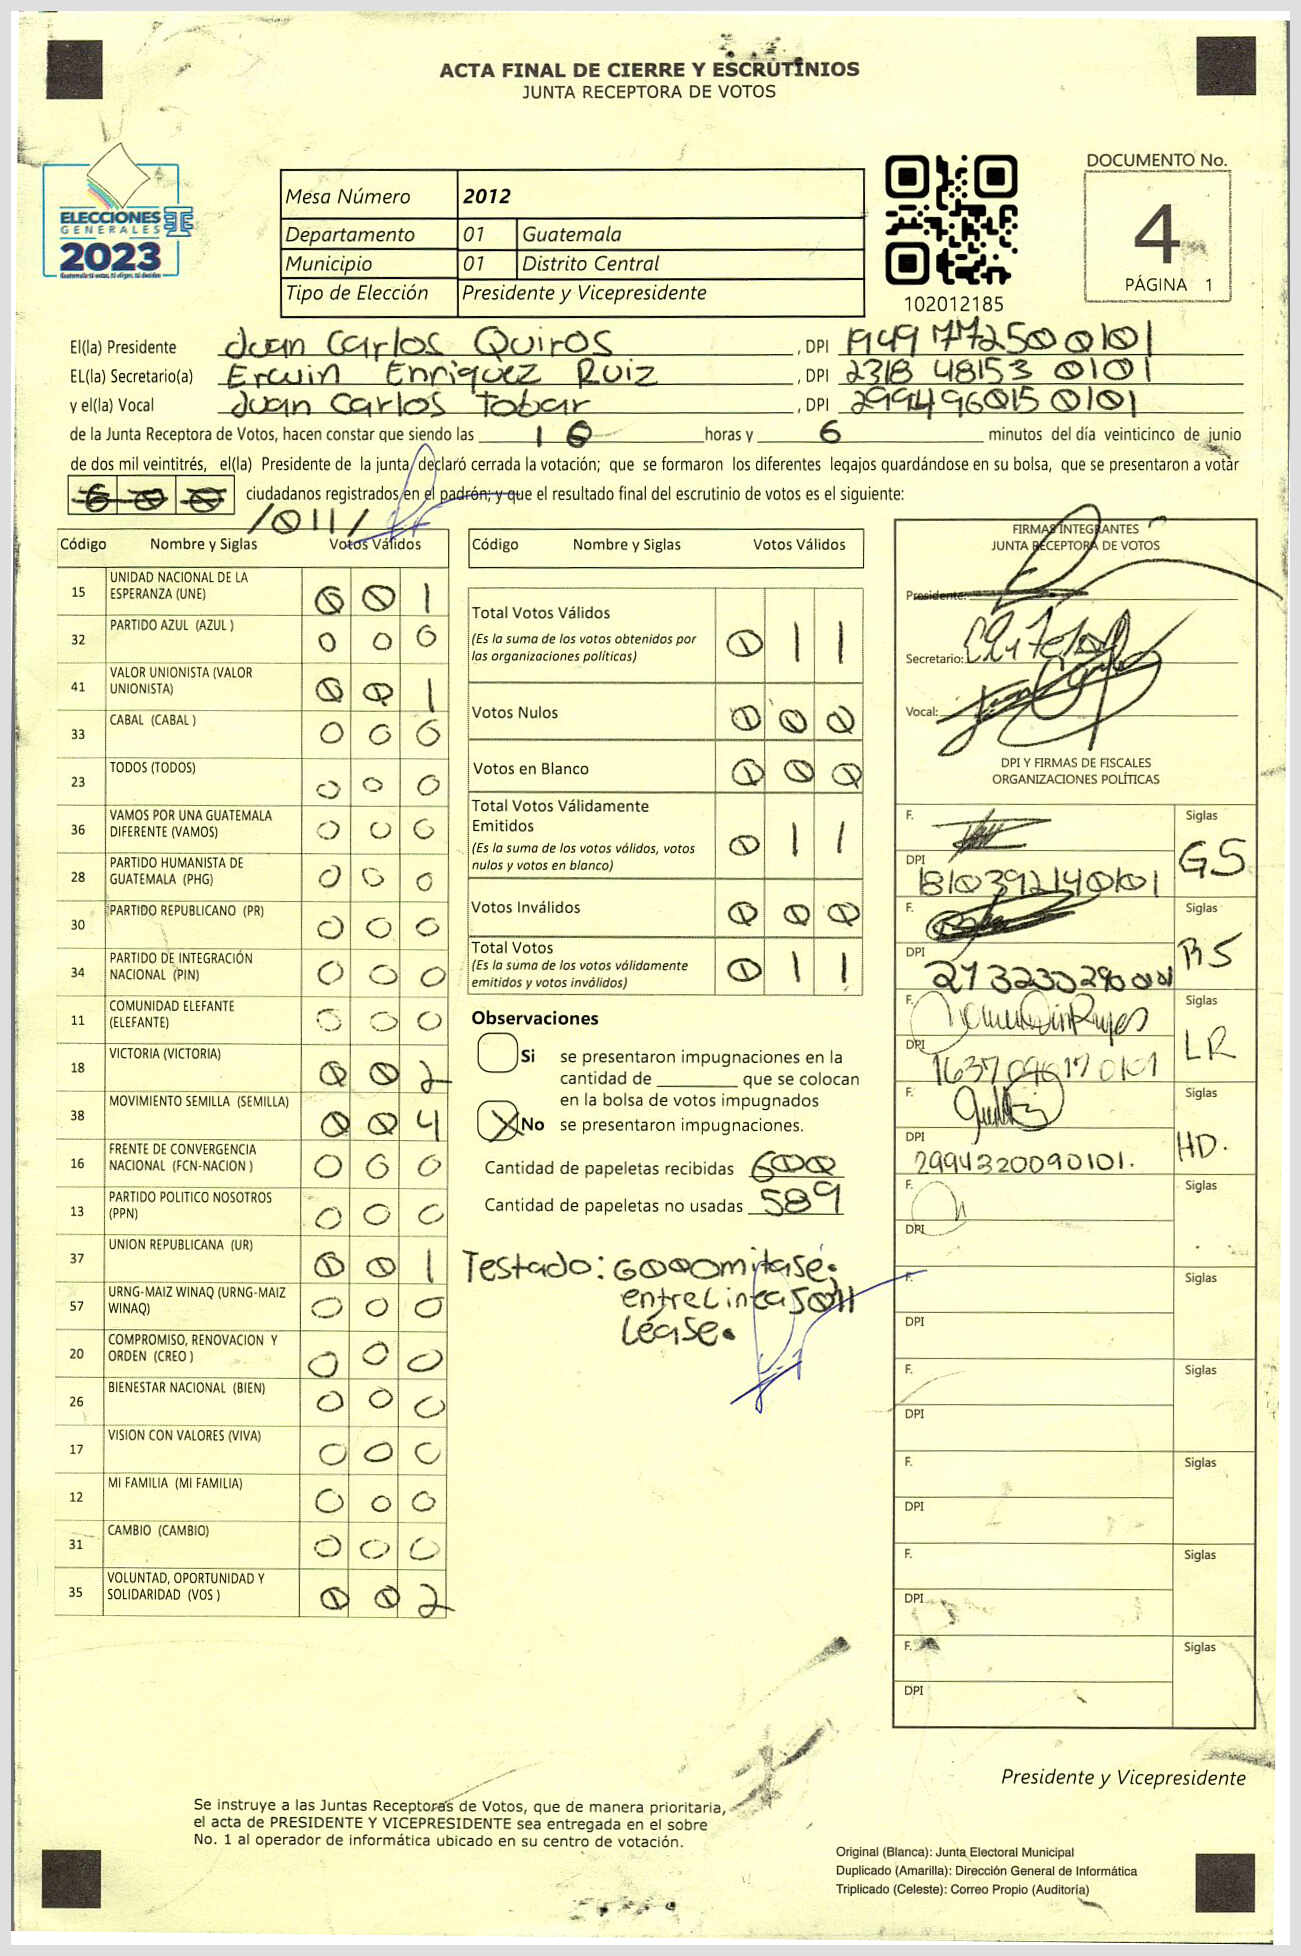 ACTA FINAL DE CIERRE Y ESCRUTINIOS
JUNTA RECEPTORA DE VOTOS
ELECCIONES
GENERALES
2023
Mesa Número 2012
Departamento 01 Guatemala
Municipio 01 Distrito Central
Tipo de Elección Presidente y Vicepresidente
102012185
DOCUMENTO No.
4
PÁGINA 1
El(la) Presidente Juan Carlos Quiros, DPI 1949 77250 0101
EL(la) Secretario(a) Erwin Enriquez Ruiz, DPI 2318 48153 0101
y el(la) Vocal Juan Carlos Tobar, DPI 299496015 0101
de la Junta Receptora de Votos, hacen constar que siendo las 16 horas y 6 minutos del día veinticinco de junio
de dos mil veintitrés, el(la) Presidente de la junta, declaró cerrada la votación; que se formaron los diferentes legajos guardándose en su bolsa, que se presentaron a votar
600 ciudadanos registrados en el padrón; y que el resultado final del escrutinio de votos es el siguiente:
/011/
Código Nombre y Siglas Votos Válidos
15 UNIDAD NACIONAL DE LA ESPERANZA (UNE) 0 0 1
32 PARTIDO AZUL (AZUL ) 0 0 0
41 VALOR UNIONISTA (VALOR UNIONISTA) 0 0 1
33 CABAL (CABAL ) 0 0 0
23 TODOS (TODOS) 0 0 0
36 VAMOS POR UNA GUATEMALA DIFERENTE (VAMOS) 0 0 0
28 PARTIDO HUMANISTA DE GUATEMALA (PHG) 0 0 0
30 PARTIDO REPUBLICANO (PR) 0 0 0
34 PARTIDO DE INTEGRACIÓN NACIONAL (PIN) 0 0 0
11 COMUNIDAD ELEFANTE (ELEFANTE) 0 0 0
18 VICTORIA (VICTORIA) 0 0 2
38 MOVIMIENTO SEMILLA (SEMILLA) 0 0 4
16 FRENTE DE CONVERGENCIA NACIONAL (FCN-NACION ) 0 0 0
13 PARTIDO POLITICO NOSOTROS (PPN) 0 0 0
37 UNION REPUBLICANA (UR) 0 0 1
57 URNG-MAIZ WINAQ (URNG-MAIZ WINAQ) 0 0 0
20 COMPROMISO, RENOVACION Y ORDEN (CREO ) 0 0 0
26 BIENESTAR NACIONAL (BIEN) 0 0 0
17 VISION CON VALORES (VIVA) 0 0 0
12 MI FAMILIA (MI FAMILIA) 0 0 0
31 CAMBIO (CAMBIO) 0 0 0
35 VOLUNTAD, OPORTUNIDAD Y SOLIDARIDAD (VOS ) 0 0 2
Código Nombre y Siglas Votos Válidos
Total Votos Válidos 0 1 1
(Es la suma de los votos obtenidos por
las organizaciones políticas)
Votos Nulos 0 0 0
Votos en Blanco 0 0 0
Total Votos Válidamente
Emitidos 0 1 1
(Es la suma de los votos válidos, votos
nulos y votos en blanco)
Votos Inválidos 0 0 0
Total Votos 0 1 1
(Es la suma de los votos válidamente
emitidos y votos inválidos)
Observaciones
Si se presentaron impugnaciones en la
cantidad de ________ que se colocan
en la bolsa de votos impugnados
X No se presentaron impugnaciones.
Cantidad de papeletas recibidas 600
Cantidad de papeletas no usadas 589
Testado: 600 Omitasé.
entrelineas 011
Léase.
FIRMAS INTEGRANTES
JUNTA RECEPTORA DE VOTOS
Presidente:
Secretario:
Vocal:
DPI Y FIRMAS DE FISCALES
ORGANIZACIONES POLÍTICAS
F. Siglas GS
DPI 1810392140101
F. Siglas BS
DPI
F. Siglas LR
DPI
F. Siglas HD.
DPI 2994320090101.
F. Siglas
DPI
F. Siglas
DPI
F. Siglas
DPI
F. Siglas
DPI
F. Siglas
DPI
F. Siglas
DPI
Presidente y Vicepresidente
Se instruye a las Juntas Receptoras de Votos, que de manera prioritaria,
el acta de PRESIDENTE Y VICEPRESIDENTE sea entregada en el sobre
No. 1 al operador de informática ubicado en su centro de votación.
Original (Blanca): Junta Electoral Municipal
Duplicado (Amarilla): Dirección General de Informática
Triplicado (Celeste): Correo Propio (Auditoría)